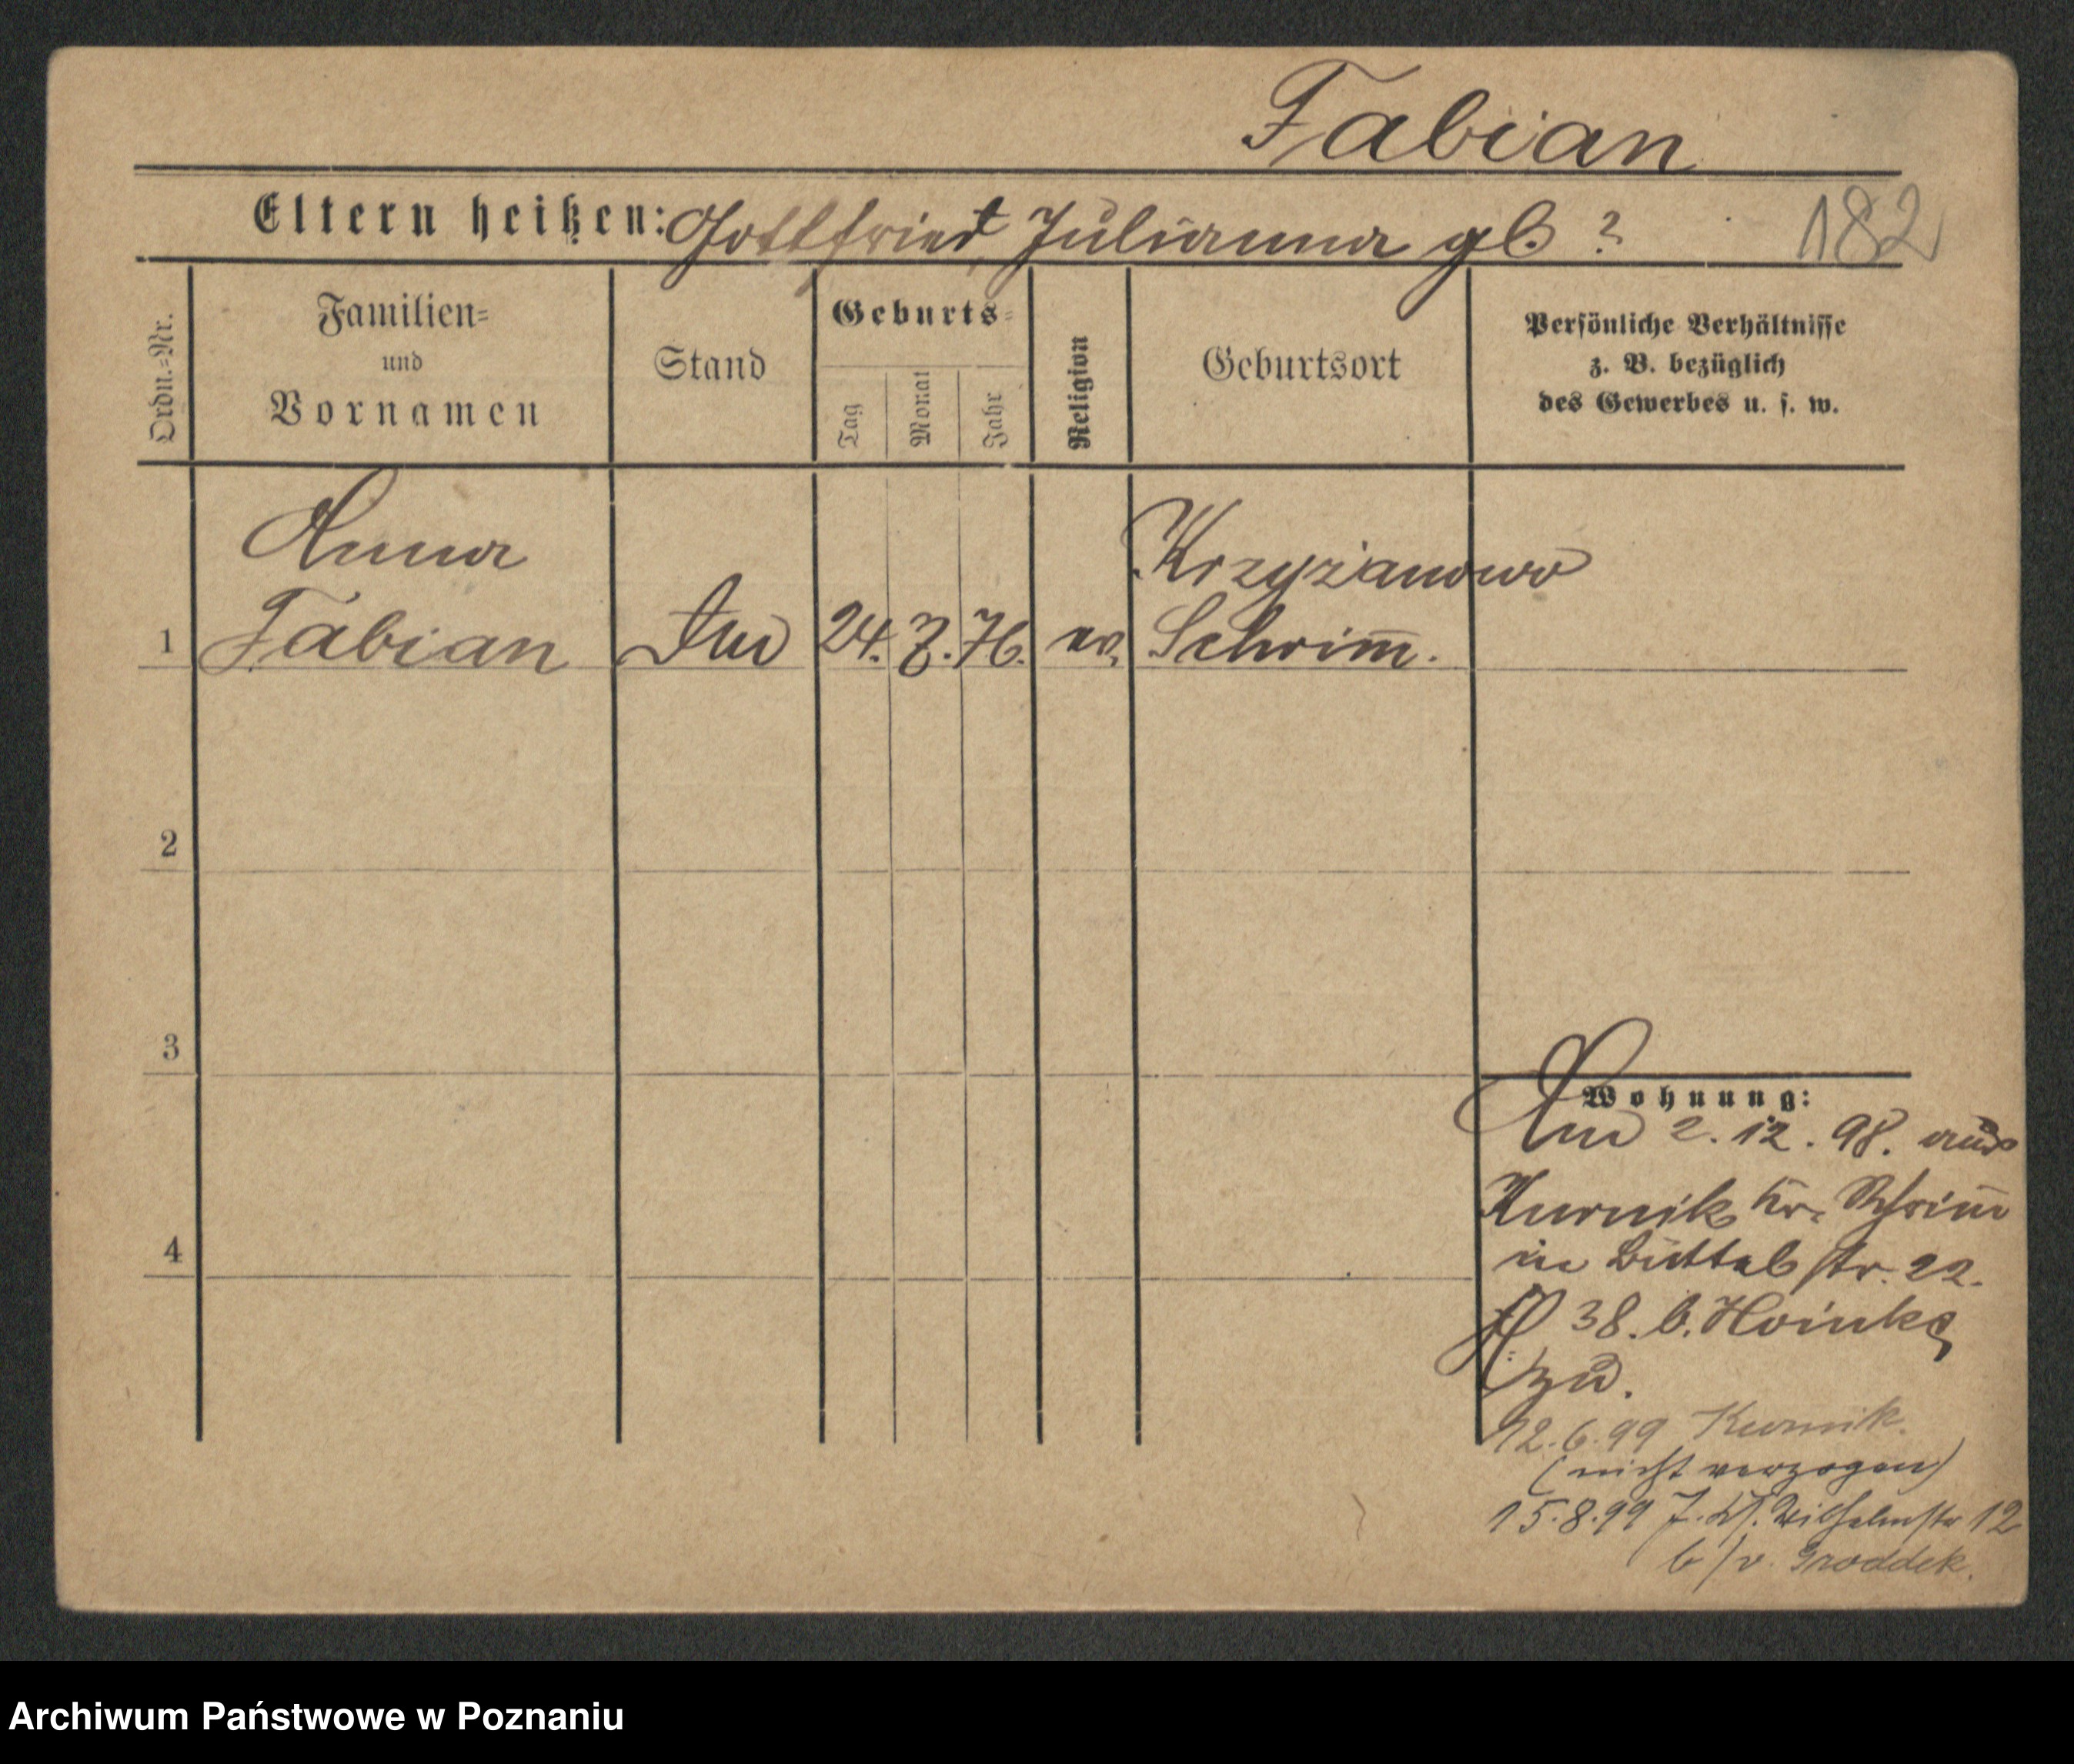 Fabian
Eltern heißen: Gottfried, Julianna gb ?
182
Ordn.=Nr.
Familien=
und
Vornamen
Stand
Geburts=
Tag
Monat
Jahr
Religion
Geburtsort
Persönliche Verhältnisse
z. B. bezüglich
des Gewerbes u. s. w.
Anna
Krzyżanowo
1 Fabian 24. 7. 76. ev. Schrim̅.
2
3
4
Wohnung:
2. 12. 98. aus
Kurnik Kr. Schrim̅
in Büttelstr. 22.
38. b. Hoinke
zu.
12.6.99 Kurnik.
(nicht verzogen)
15.8.99 Wilhelmstr 12
b/v. Groddek.